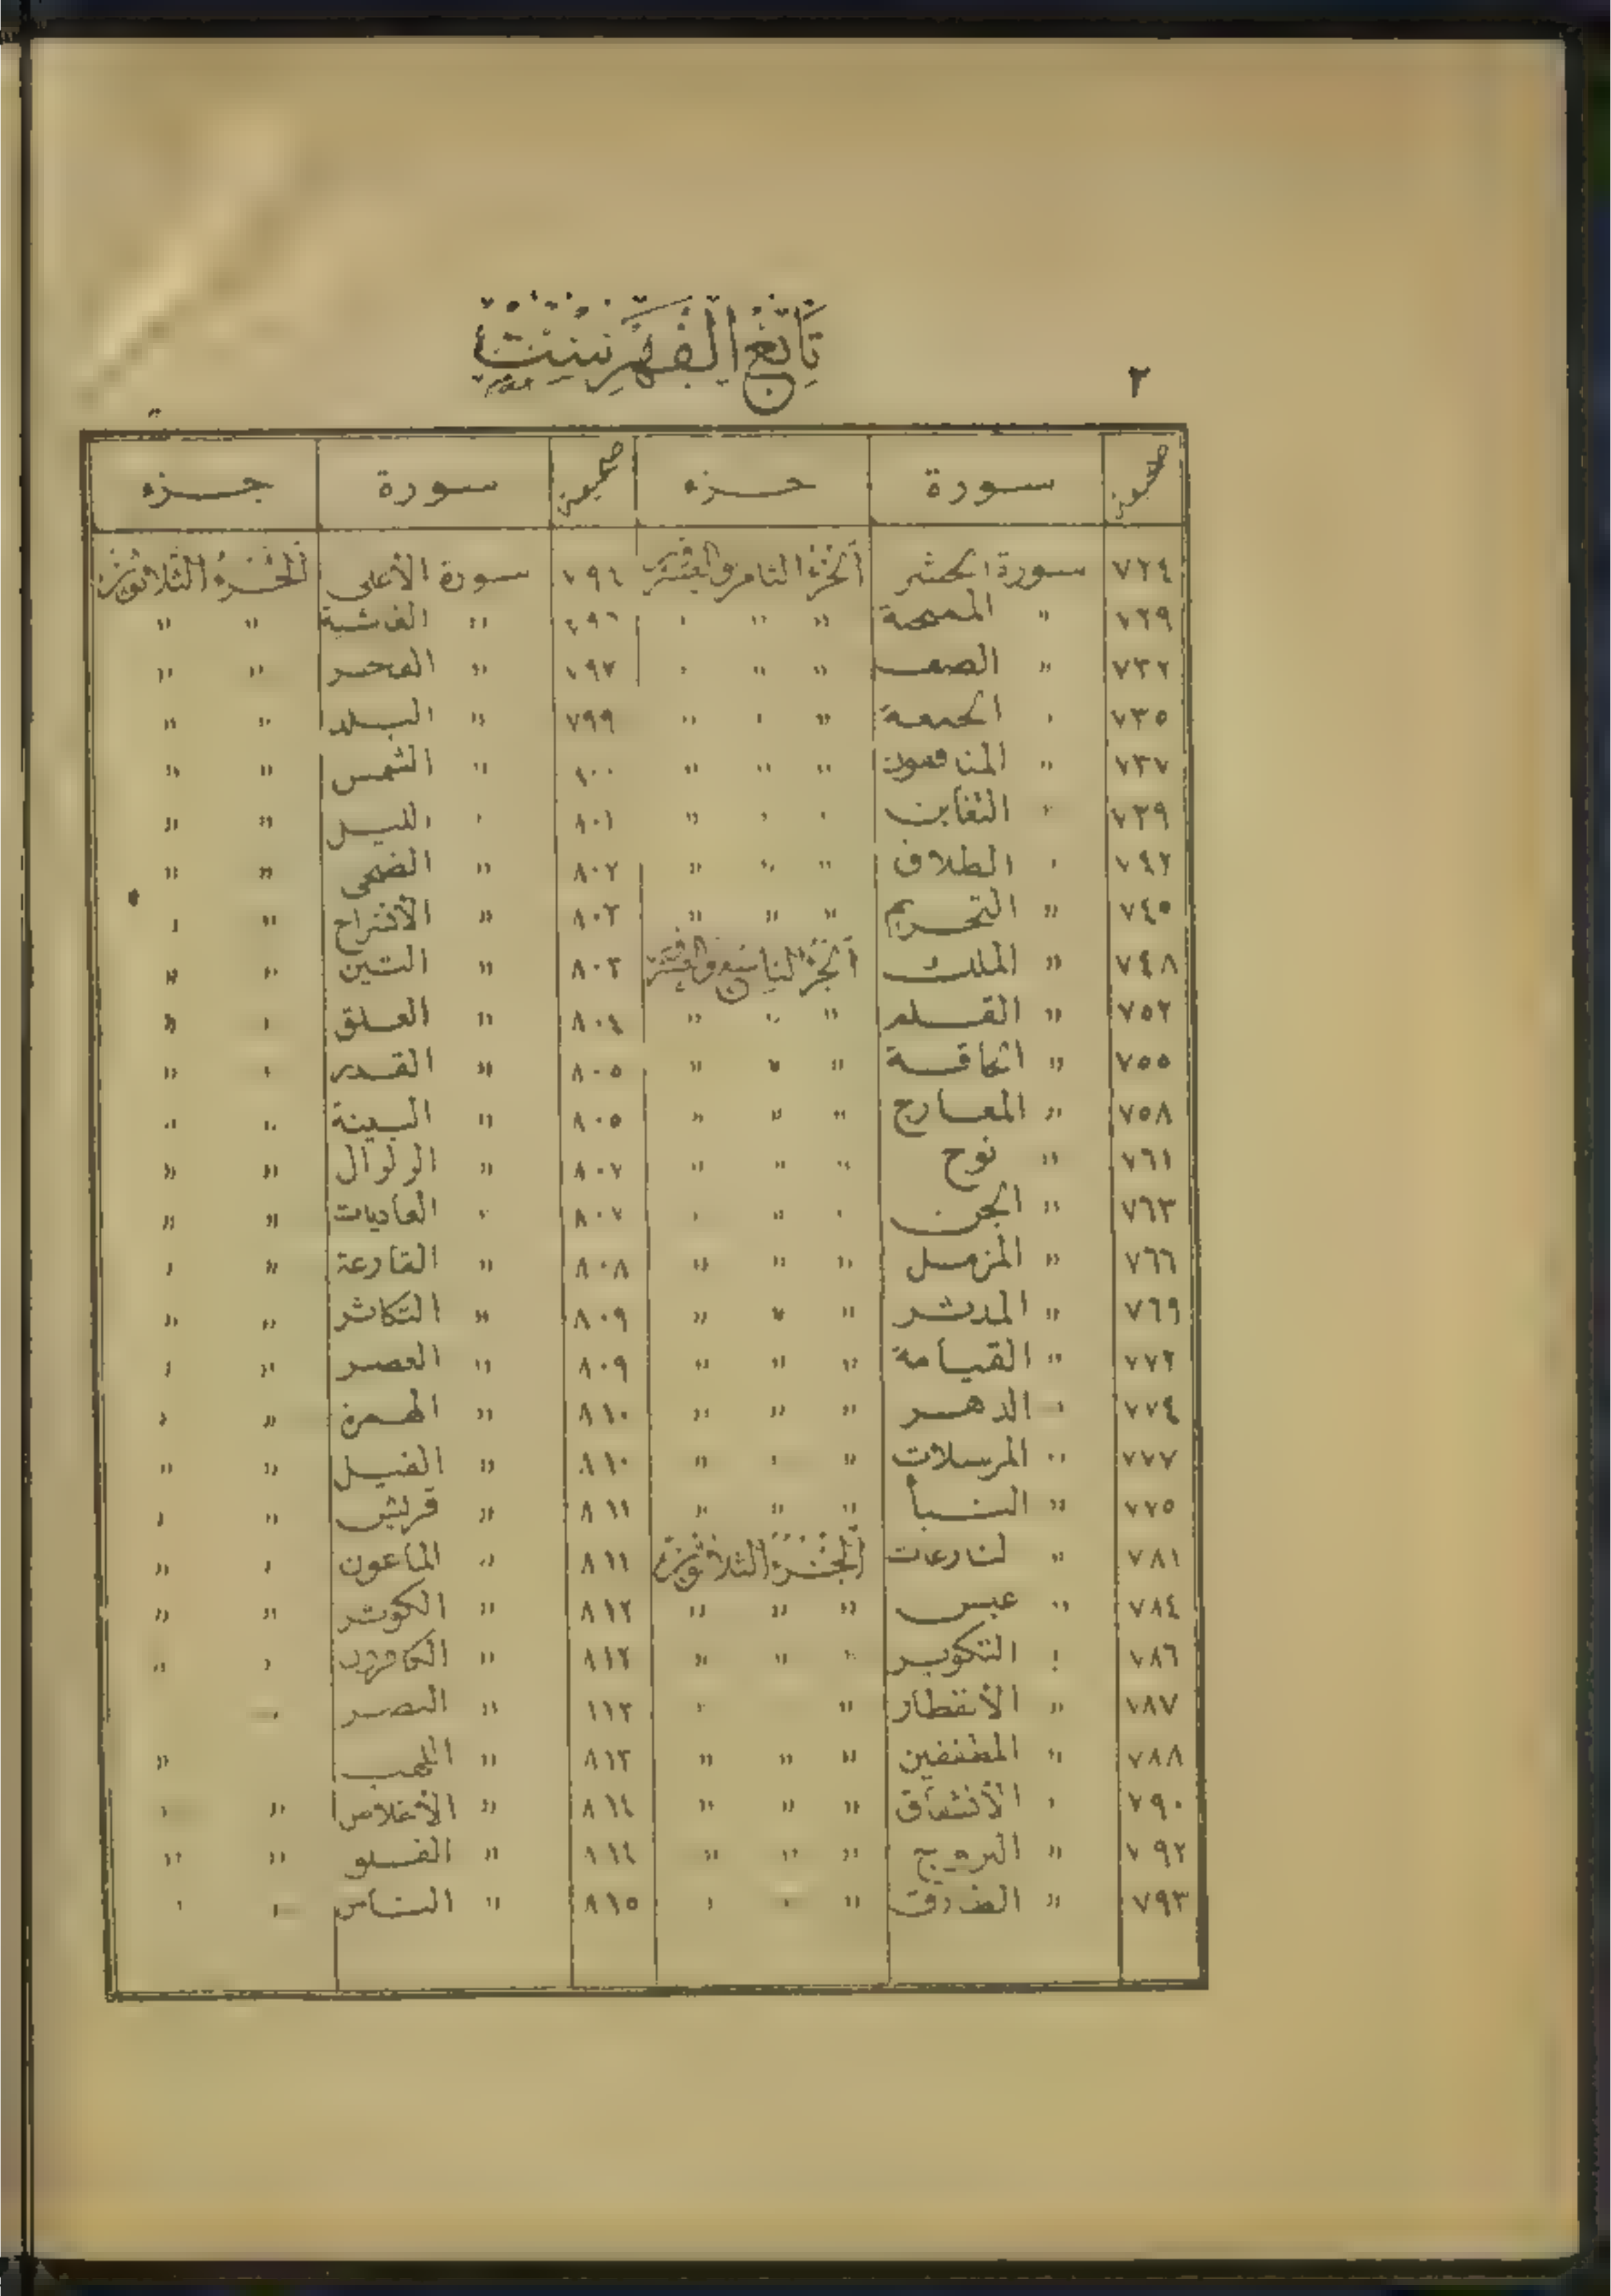 ٢
تابع الفهرست
صحيفة سورة جزء صحيفة سورة جزء
٧٢٤ سورة الحشر الجزء الثامن والعشر ٧٩٤ سورة الأعلى الجزء الثلاثون
٧٢٩ " الممتحنة " " " ٧٩٦ " الغاشية " "
٧٣٢ " الصف " " " ٧٩٧ " الفجر " "
٧٣٥ " الجمعة " " " ٧٩٩ " البلد " "
٧٣٧ " المنافقون " " " ٨٠٠ " الشمس " "
٧٣٩ " التغابن " " " ٨٠١ " الليل " "
٧٤٢ " الطلاق " " " ٨٠٢ " الضحى " "
٧٤٥ " التحريم " " " ٨٠٢ " الأنشراح " "
٧٤٨ " الملك الجزء التاسع والعشر ٨٠٣ " التين " "
٧٥٢ " القلم " " " ٨٠٤ " العلق " "
٧٥٥ " الحاقة " " " ٨٠٥ " القدر " "
٧٥٨ " المعارج " " " ٨٠٥ " البينة " "
٧٦١ " نوح " " " ٨٠٧ " الزلزال " "
٧٦٣ " الجن " " " ٨٠٧ " العاديات " "
٧٦٦ " المزمل " " " ٨٠٨ " القارعة " "
٧٦٩ " المدثر " " " ٨٠٩ " التكاثر " "
٧٧٢ " القيامة " " " ٨٠٩ " العصر " "
٧٧٤ " الدهر " " " ٨١٠ " الهمزة " "
٧٧٧ " المرسلات " " " ٨١٠ " الفيل " "
٧٧٥ " النبأ " " " ٨١١ " قريش " "
٧٨١ " النازعات الجزء الثلاثون ٨١١ " الماعون " "
٧٨٤ " عبس " " " ٨١٢ " الكوثر " "
٧٨٦ " التكوير " " " ٨١٢ " الكافرون " "
٧٨٧ " الأنفطار " " ٨١٣ " النصر "
٧٨٨ " المطففين " " " ٨١٣ " اللهب "
٧٩٠ " الأنشقاق " " " ٨١٤ " الأخلاص " "
٧٩٢ " البروج " " " ٨١٤ " الفلق " "
٧٩٣ " الطارق " " " ٨١٥ " الناس " "